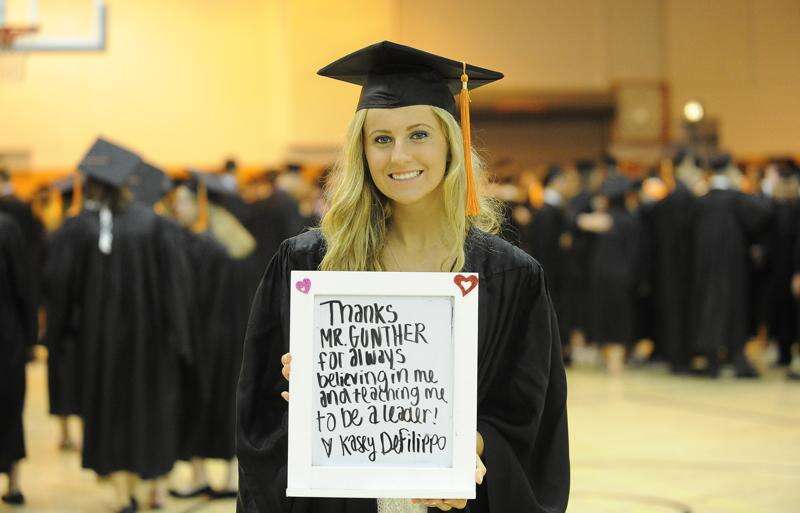 Thanks
MR. GUNTHER
for always
believing in me
and teaching me
to be a leader!
Kasey DeFilippo